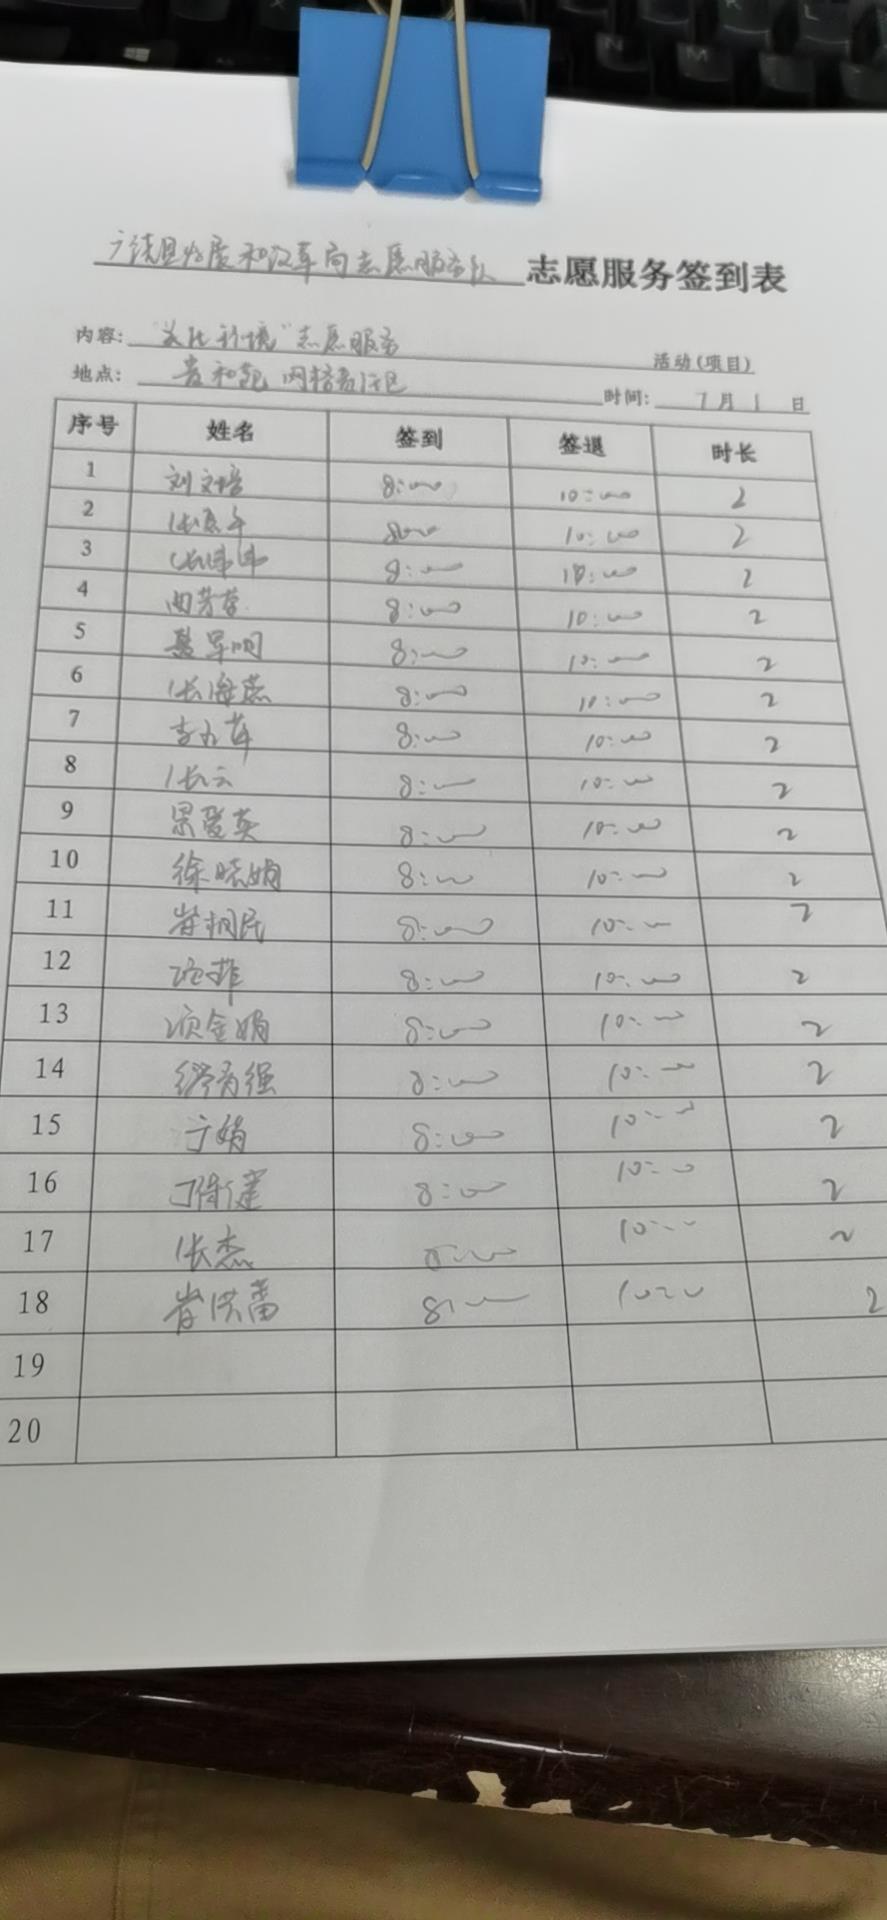 广饶县发展和改革局志愿服务队 志愿服务签到表
内容: "美化环境"志愿服务 活动(项目)
地点: 贵和苑网格责任区 时间: 7月1日
序号 姓名 签到 签退 时长
1 刘文培 8:00 10:00 2
2 张 8:00 10:00 2
3 张 8:00 10:00 2
4 8:00 10:00 2
5 军明 8:00 10:00 2
6 张海燕 8:00 10:00 2
7 李 8:00 10:00 2
8 张云 8:00 10:00 2
9 爱英 8:00 10:00 2
10 徐晓娟 8:00 10:00 2
11 8:00 10:00 2
12 8:00 10:00 2
13 项金娟 8:00 10:00 2
14 强 8:00 10:00 2
15 于娟 8:00 10:00 2
16 8:00 10:00 2
17 张杰 8:00 10:00 2
18 8:00 10:00 2
19
20